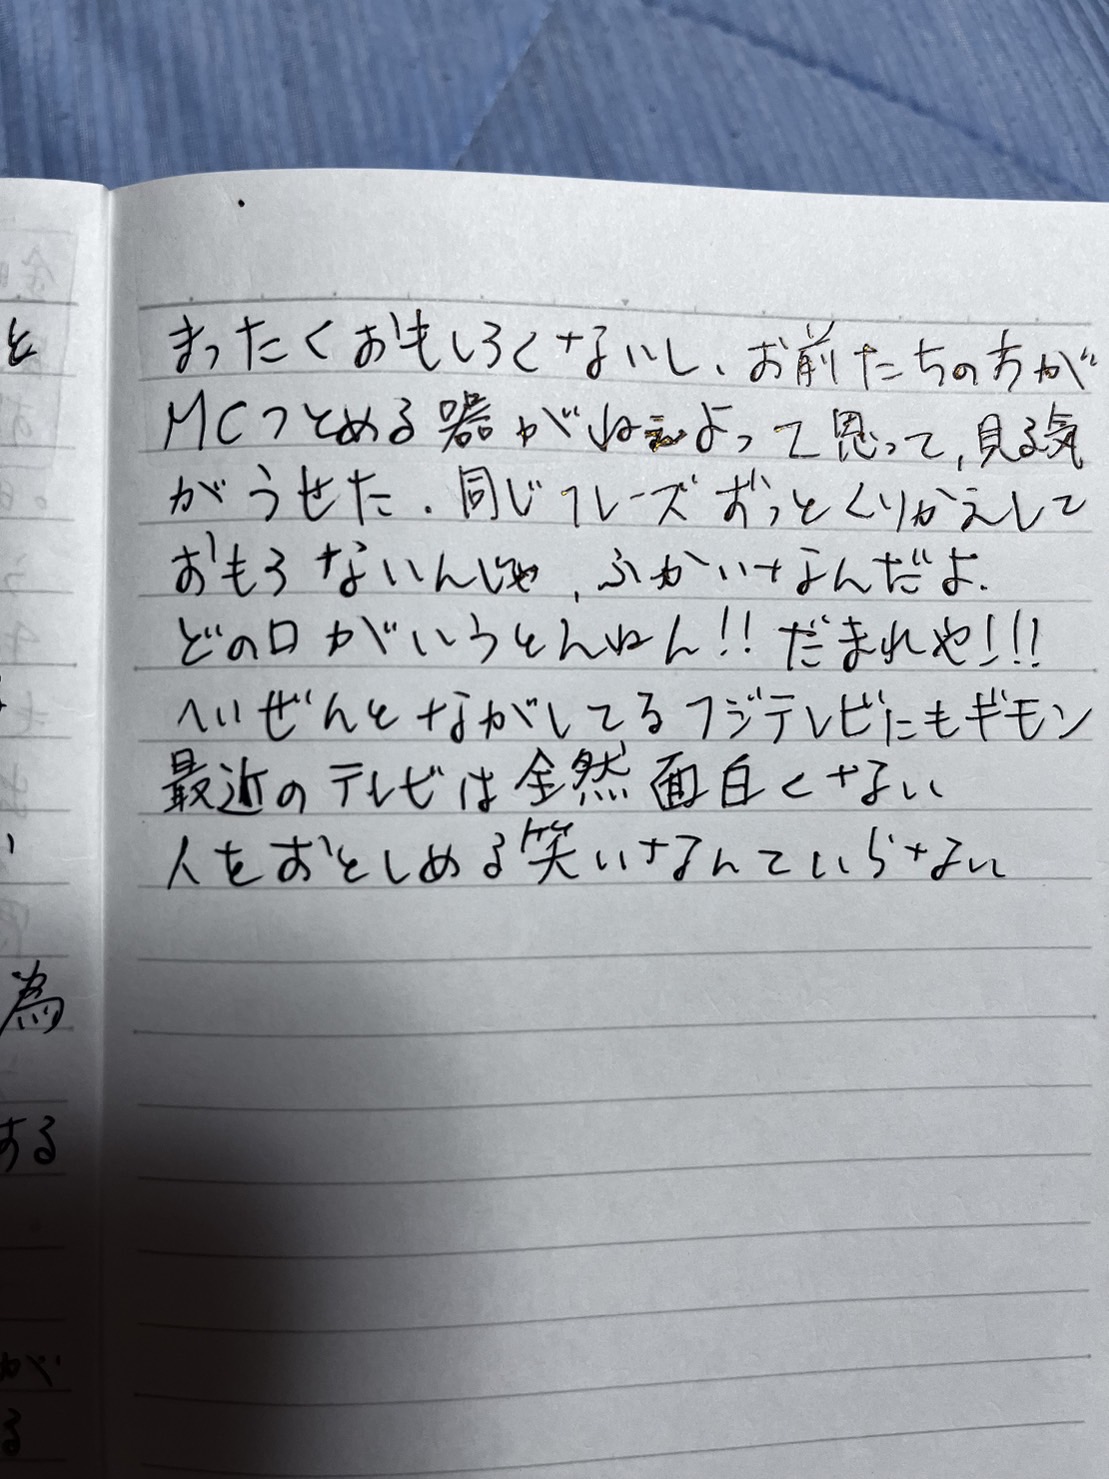 と
まったくおもしろくないし、お前たちの方が
MCつとめる器がねぇよって思って、見る気
がうせた。同じフレーズずっとくりかえして
おもろないんじゃ、ふかいなんだよ.
どの口がいうとんねん!! だまれや!!!
へいぜんとながしてるフジテレビにもギモン
最近のテレビは全然面白くない
人をおとしめる笑いなんていらない
為
する
が
る